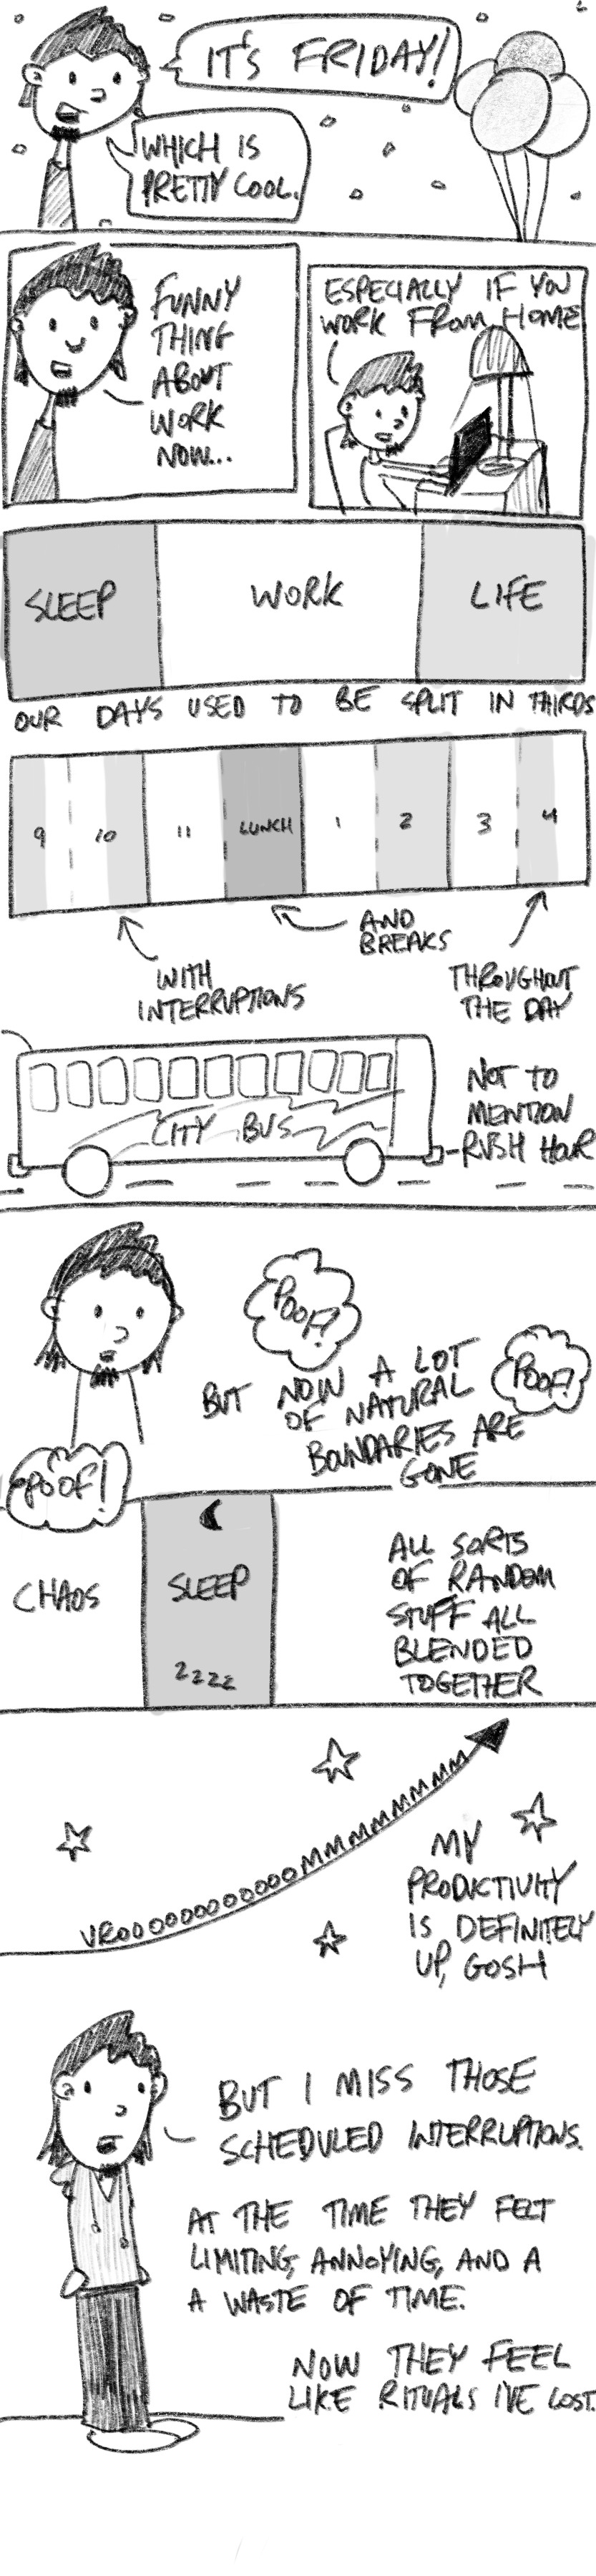 IT'S FRIDAY!
WHICH IS
PRETTY COOL.
FUNNY
THING
ABOUT
WORK
NOW...
ESPECIALLY IF YOU
WORK FROM HOME
SLEEP WORK LIFE
OUR DAYS USED TO BE SPLIT IN THIRDS
9 10 11 LUNCH 1 2 3 4
WITH
INTERRUPTIONS
AND
BREAKS
THROUGHOUT
THE DAY
CITY BUS
NOT TO
MENTION
RUSH HOUR
POOF!
POOF!
BUT NOW A LOT
OF NATURAL
BOUNDARIES ARE
GONE
POOF!
CHAOS
SLEEP
ZZZZ
ALL SORTS
OF RANDOM
STUFF ALL
BLENDED
TOGETHER
VROOOOOOOOOOOOMMMMMMMMMM
MY
PRODUCTIVITY
IS DEFINITELY
UP, GOSH
BUT I MISS THOSE
SCHEDULED INTERRUPTIONS.
AT THE TIME THEY FELT
LIMITING, ANNOYING, AND A
A WASTE OF TIME.
NOW THEY FEEL
LIKE RITUALS I'VE LOST.